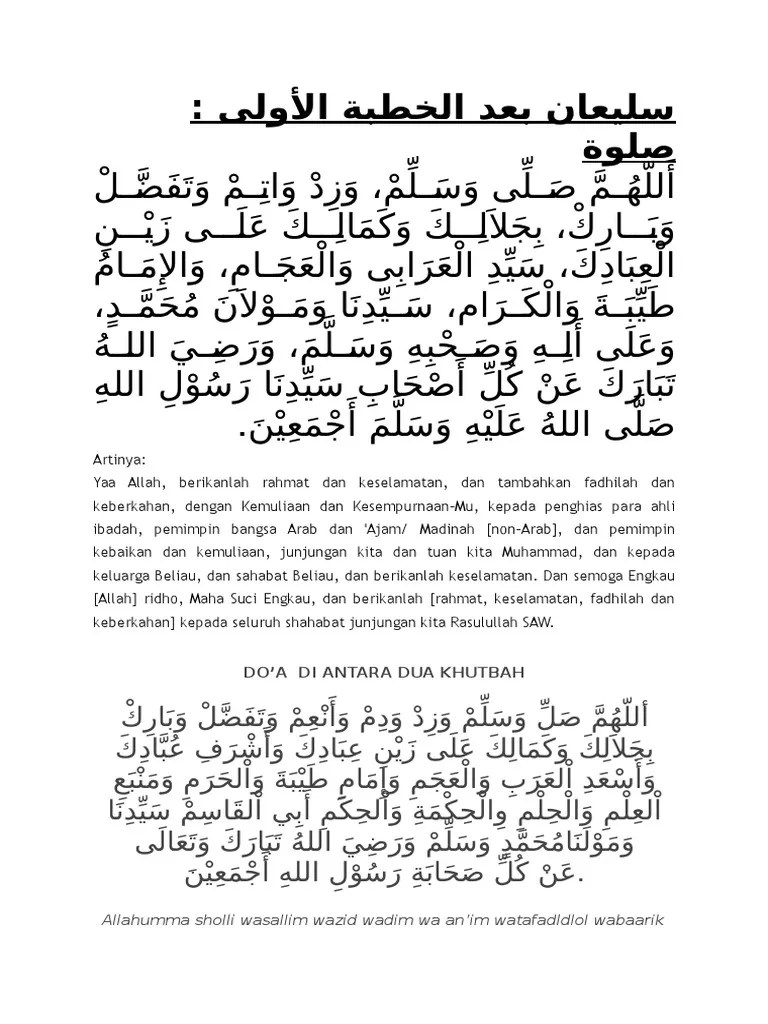 سليعان بعد الخطبة الأولى :
صلوة
أَللّهُمَّ صَلِّى وَسَلِّمْ، وَزِدْ وَاتِمْ وَتَفَضَّلْ
وَبَارِكْ، بِجَلاَلِكَ وَكَمَالِكَ عَلَى زَيْنِ
الْعِبَادِكَ، سَيِّدِ الْعَرَابِى وَالْعَجَامِ، وَالإِمَامُ
طَيِّبَةَ وَالْكَرَام، سَيِّدِنَا وَمَوْلاَنَ مُحَمَّدٍ،
وَعَلَى أَلِهِ وَصَحْبِهِ وَسَلَّمَ، وَرَضِيَ اللهُ
تَبَارَكَ عَنْ كُلِّ أَصْحَابِ سَيِّدِنَا رَسُوْلِ اللهِ
صَلَّى اللهُ عَلَيْهِ وَسَلَّمَ أَجْمَعِيْنَ.
Artinya:
Yaa Allah, berikanlah rahmat dan keselamatan, dan tambahkan fadhilah dan
keberkahan, dengan Kemuliaan dan Kesempurnaan-Mu, kepada penghias para ahli
ibadah, pemimpin bangsa Arab dan 'Ajam/ Madinah [non-Arab], dan pemimpin
kebaikan dan kemuliaan, junjungan kita dan tuan kita Muhammad, dan kepada
keluarga Beliau, dan sahabat Beliau, dan berikanlah keselamatan. Dan semoga Engkau
[Allah] ridho, Maha Suci Engkau, dan berikanlah [rahmat, keselamatan, fadhilah dan
keberkahan] kepada seluruh shahabat junjungan kita Rasulullah SAW.
DO’A  DI ANTARA DUA KHUTBAH
أللّهُمَّ صَلِّ وَسَلِّمْ وَزِدْ وَدِمْ وَأَنْعِمْ وَتَفَضَّلْ وَبَارِكْ
بِجَلاَلِكَ وَكَمَالِكَ عَلَى زَيْنِ عِبَادِكَ وَأَشْرَفِ عُبَّادِكَ
وَأَسْعَدِ اْلعَرَبِ وَالْعَجَمِ وَإِمَامِ طَيْبَةَ وَاْلحَرَمِ وَمَنْبَعِ
اْلعِلْمِ وَالْحِلْمِ وِالْحِكْمَةِ وَاْلحِكَمِ أَبِي اْلقَاسِمْ سَيِّدِنَا
وَمَوْلَنَامُحَمَّدٍ وَسَلِّمْ وَرَضِيَ اللهُ تَبَارَكَ وَتَعَالَى
عَنْ كُلِّ صَحَابَةِ رَسُوْلِ اللهِ أَجْمَعِيْنَ.
Allahumma sholli wasallim wazid wadim wa an'im watafadldlol wabaarik